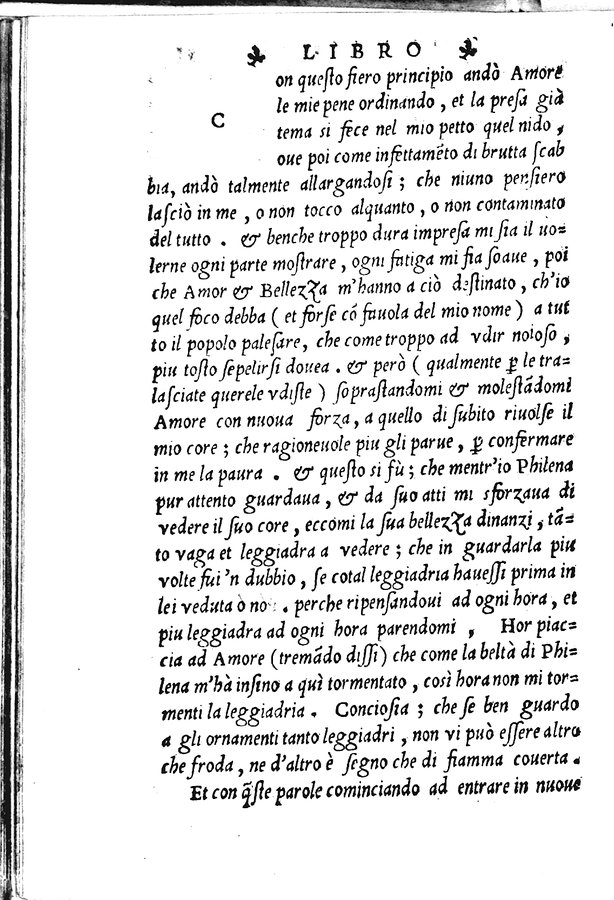 LIBRO
C
on queſto fiero principio andò Amore
le mie pene ordinando, et la preſa già
tema si fece nel mio petto quel nido,
oue poi come infettamẽto di brutta ſcab
bia, andò talmente allargandoſi; che niuno penſiero
laſciò in me, o non tocco alquanto, o non contaminato
del tutto. & benche troppo dura impreſa mi ſia il uo=
lerne ogni parte moſtrare, ogni fatiga mi fia ſoaue, poi
che Amor & Bellezza m'hanno a ciò deſtinato, ch'io
quel foco debba (et forſe cõ fauola del mio nome) a tut
to il popolo paleſare, che come troppo ad vdir noioſo,
piu toſto ſepelirſi douea. & però (qualmente ꝑ le tra=
laſciate querele vdiſte) ſopraſtandomi & moleſtãdomi
Amore con nuoua forza, a quello di ſubito riuolſe il
mio core; che ragioneuole piu gli parue, ꝑ confermare
in me la paura. & queſto si fù; che mentr'io Philena
pur attento guardaua, & da ſuo atti mi sforzaua di
vedere il ſuo core, eccomi la ſua bellezza dinanzi, tã=
to vaga et leggiadra a vedere; che in guardarla piu
volte fui 'n dubbio, ſe cotal leggiadria haueſſi prima in
lei veduta ò no. perche ripenſandoui ad ogni hora, et
piu leggiadra ad ogni hora parendomi, Hor piac=
cia ad Amore (tremãdo diſſi) che come la beltà di Phi=
lena m'hà inſino a quì tormentato, così hora non mi tor=
menti la leggiadria. Conciosia; che ſe ben guardo
a gli ornamenti tanto leggiadri, non vi può eſſere altro
che froda, ne d'altro è ſegno che di fiamma couerta.
Et con q̃ſte parole cominciando ad entrare in nuoue